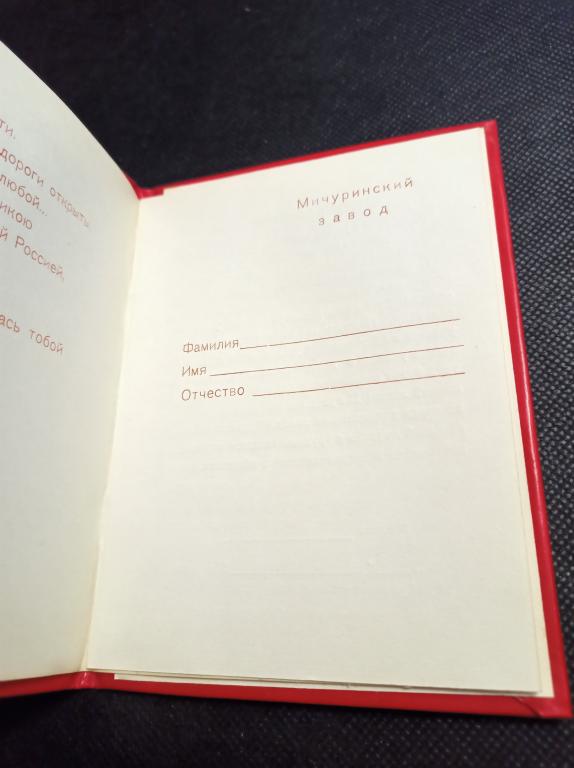 ти.
дороги открыты
любой...
икою
й Россией,
ась тобой
Мичуринский
завод
Фамилия
Имя
Отчество